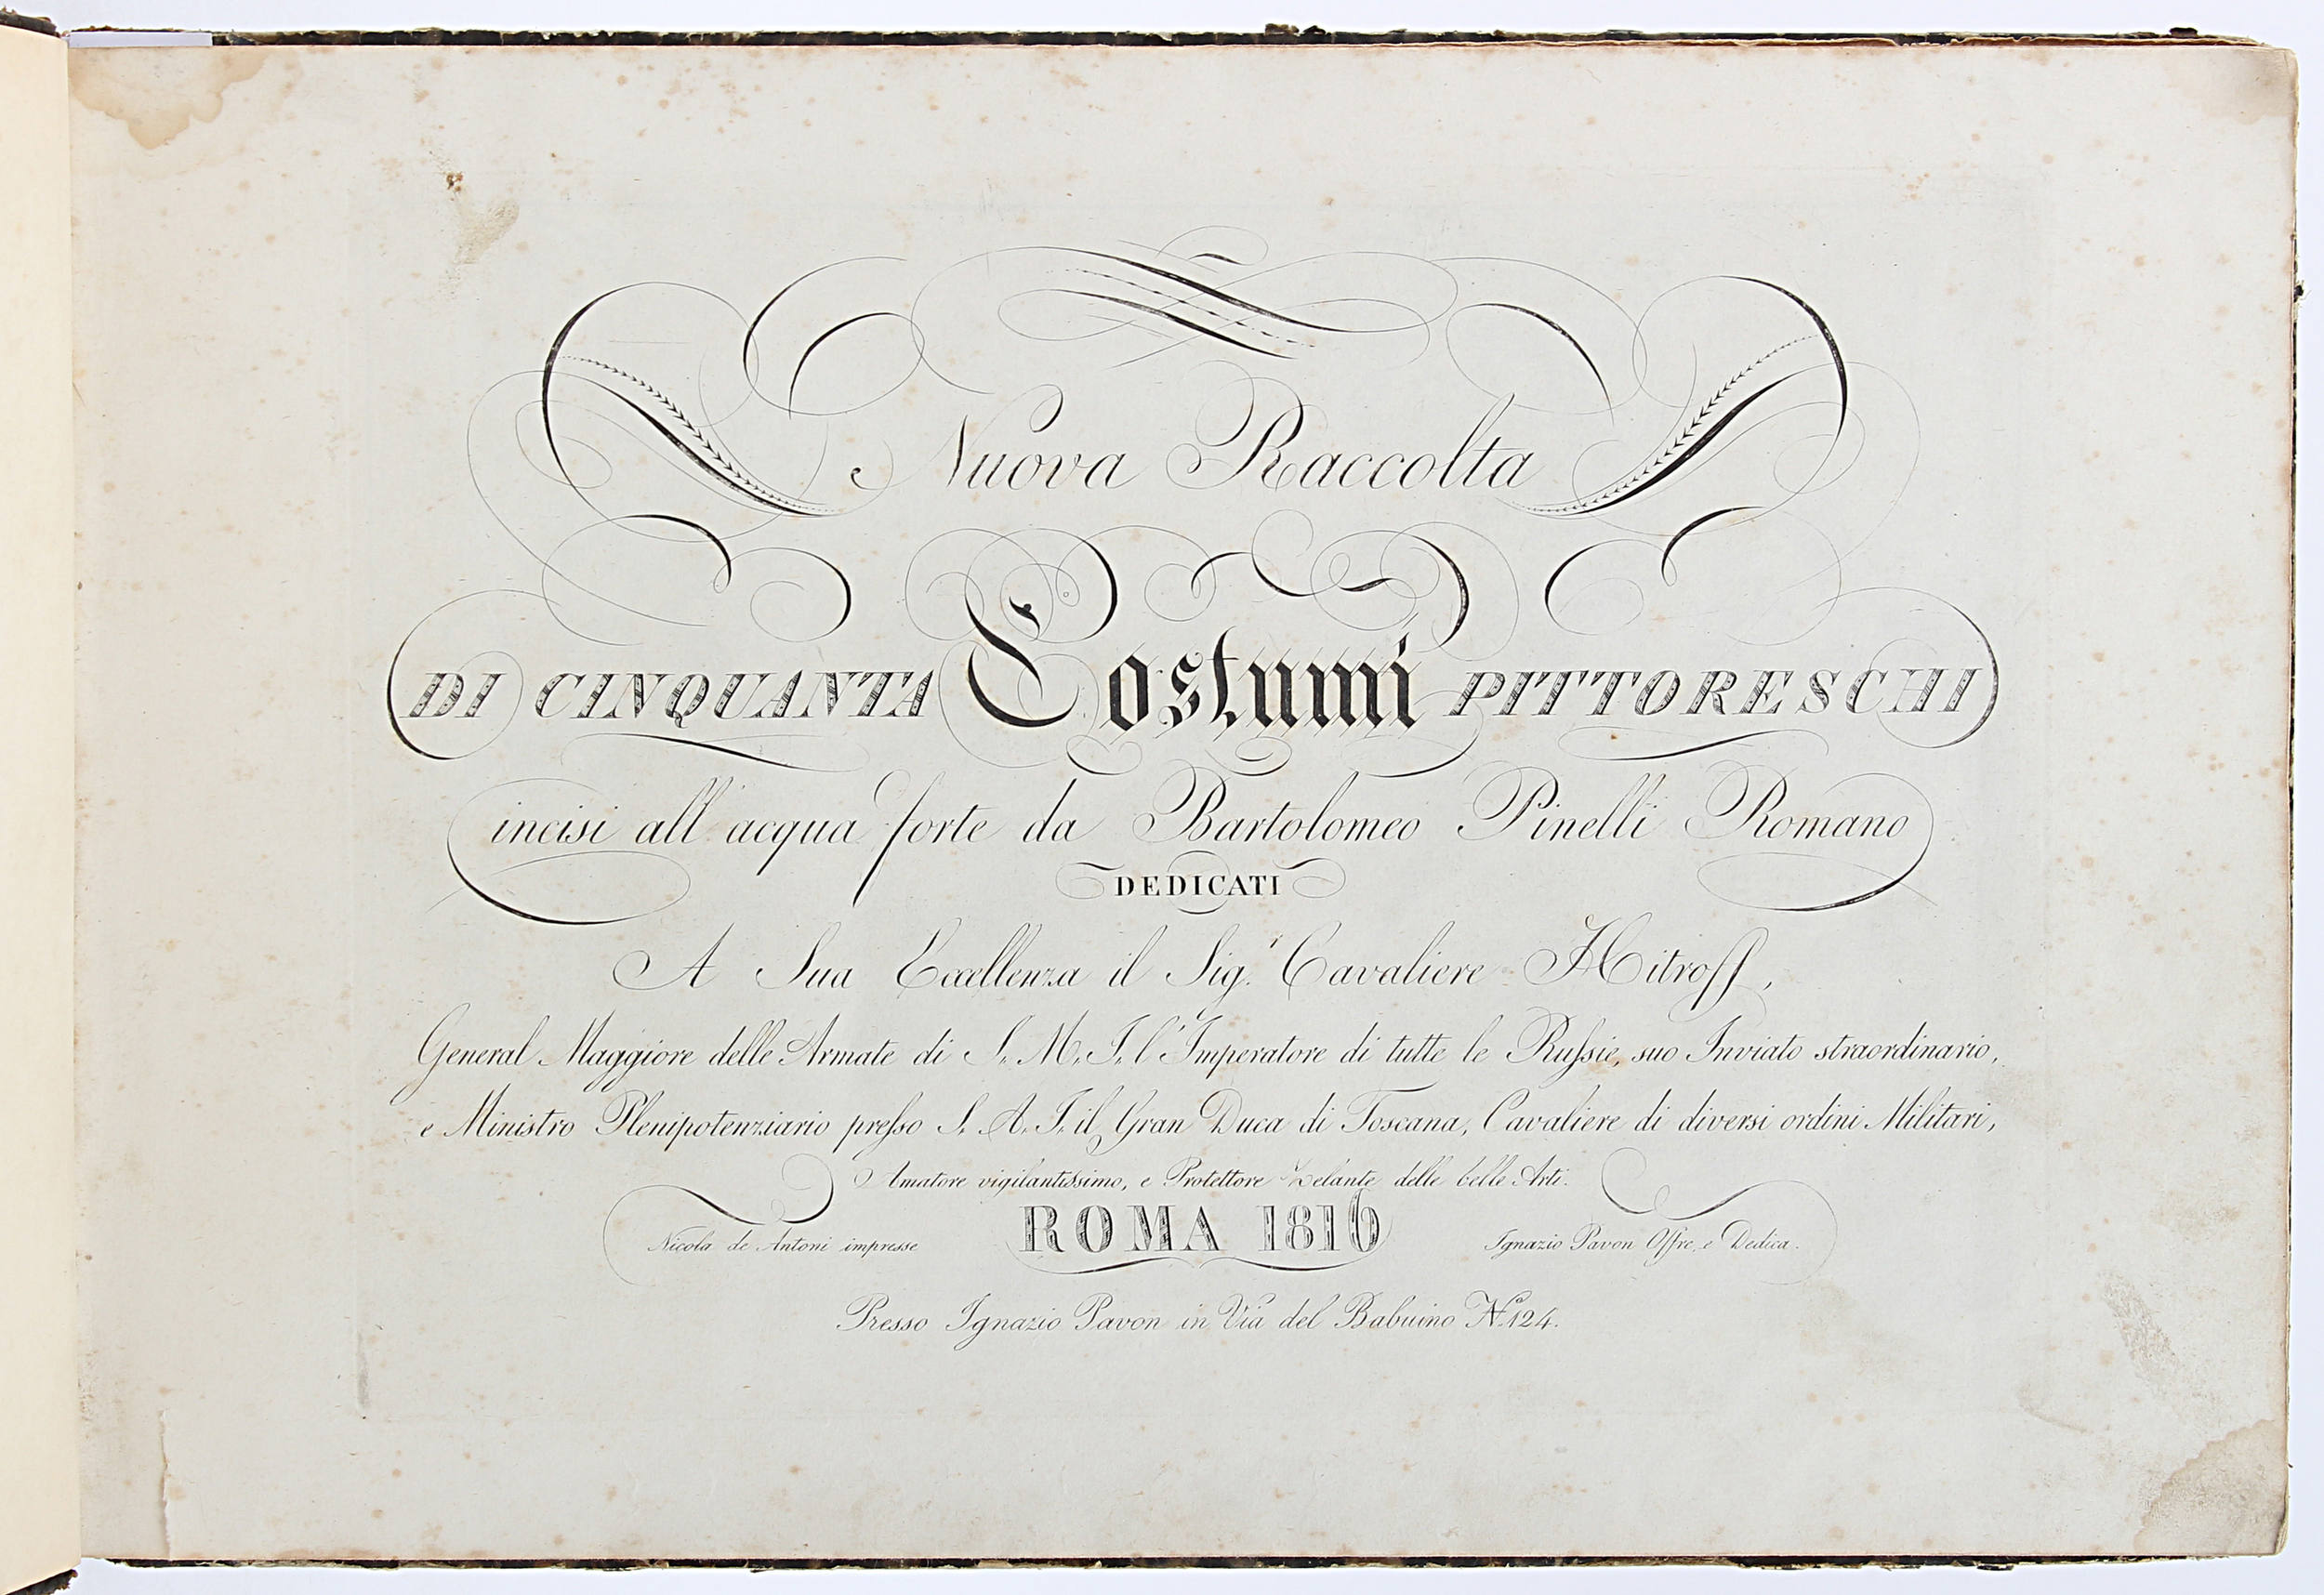 Nuova Raccolta
DI CINQUANTA Costumi PITTORESCHI
incisi all'acqua forte da Bartolomeo Pinelli Romano
DEDICATI
A Sua Eccellenza il Sig.r Cavaliere Hitroff,
General Maggiore delle Armate di S. M. I. l'Imperatore di tutte le Rußie, suo Inviato straordinario,
e Ministro Plenipotenziario preßo S. A. I. il Gran Duca di Toscana, Cavaliere di diversi ordini Militari,
Amatore vigilantissimo, e Protettore Zelante delle belle Arti.
ROMA 1816
Nicola de Antoni impresse
Ignazio Pavon Offre, e Dedica.
Presso Ignazio Pavon in Via del Babuino N.o 124.